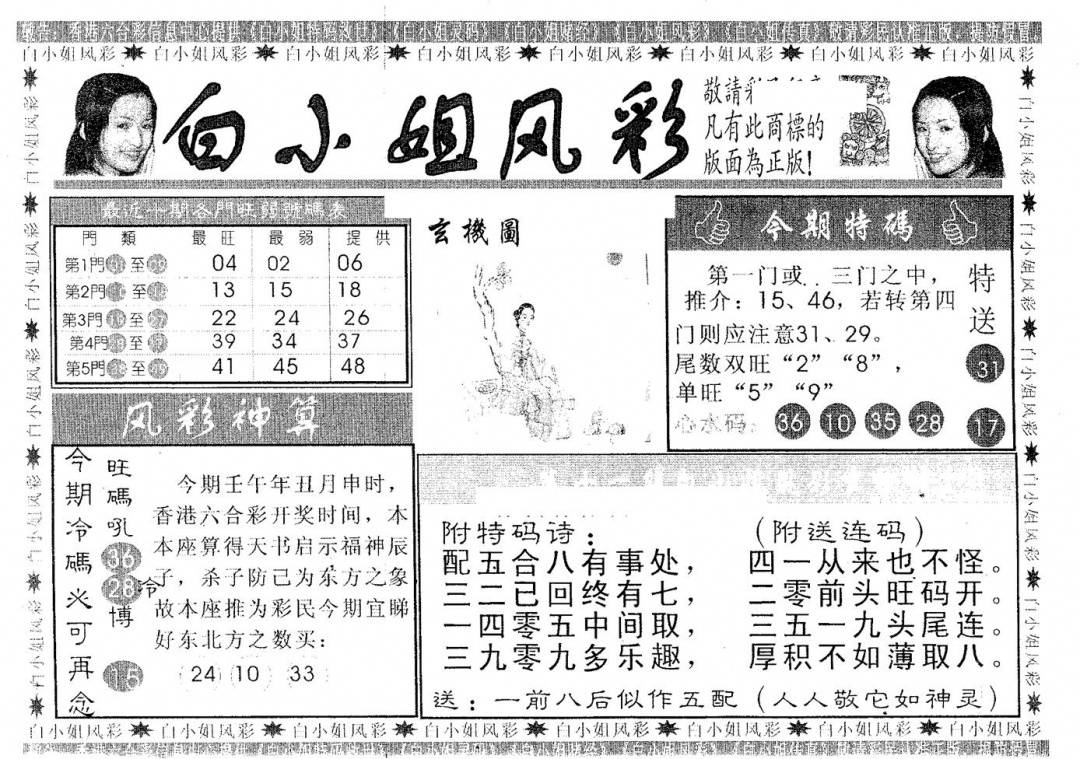 白小姐风彩 白小姐风彩 白小姐风彩 白小姐风彩 白小姐风彩 白小姐风彩 白小姐风彩 白小姐风彩
白小姐风彩
敬請彩
凡有此商標的
版面為正版!
最近一期各門旺弱號碼表
門類 最旺 最弱 提供
第1門 至09 04 02 06
第2門 至 13 15 18
第3門 至 22 24 26
第4門 至 39 34 37
第5門 至 41 45 48
玄機圖
今期特碼
第一门或 三门之中，
推介：15、46，若转第四
门则应注意31、29。
尾数双旺“2”“8”，
单旺“5”“9”
心水码：36 10 35 28
特送
31
17
风彩神算
今期冷碼火可再念
旺碼吼
36
28
冷
博
15
今期壬午年丑月申时，
香港六合彩开奖时间，本
本座算得天书启示福神辰
子，杀子防己为东方之象
故本座推为彩民今期宜睇
好东北方之数买：
24 10 33
附特码诗：
配五合八有事处，
三二已回终有七，
一四零五中间取，
三九零九多乐趣，
（附送连码）
四一从来也不怪。
二零前头旺码开。
三五一九头尾连。
厚积不如薄取八。
送：一前八后似作五配（人人敬它如神灵）
白小姐风彩 白小姐风彩 白小姐风彩 白小姐风彩 白小姐风彩 白小姐风彩 白小姐风彩 白小姐风彩